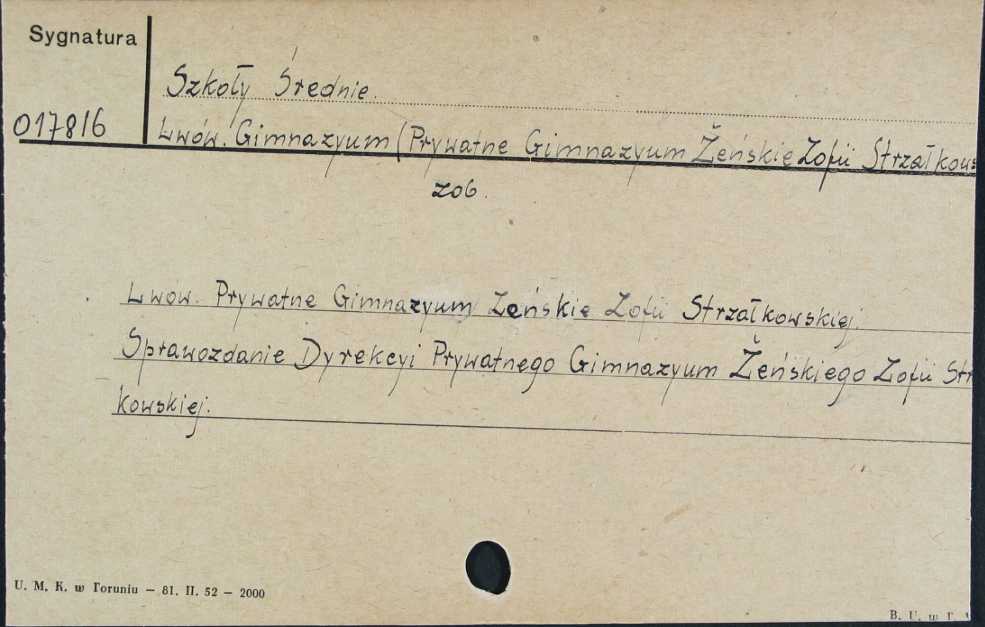 Sygnatura
017816
Szkoły Średnie.
Lwów. Gimnazyum (Prywatne Gimnazyum Żeńskie Zofii Strzałkows
zob.
Lwów. Prywatne Gimnazyum Żeńskie Zofii Strzałkowskiej.
Sprawozdanie Dyrekcyi Prywatnego Gimnazyum Żeńskiego Zofii Str
kowskiej.
U. M. K. w Toruniu — 81. II. 52 — 2000
B. U. w T.